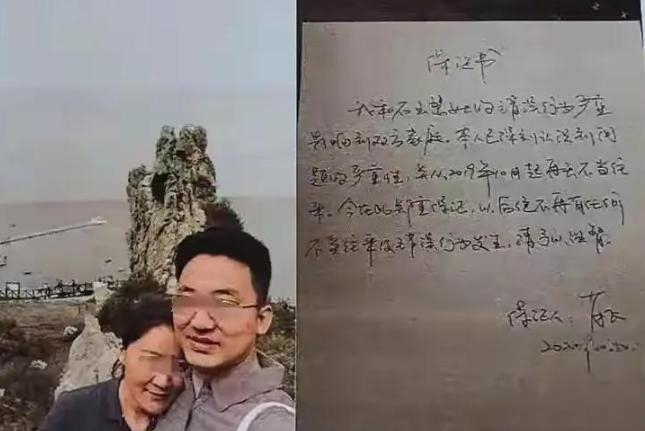 保证书
我和石玉莹女士的错误行为严重
影响到双方家庭。本人已深刻认识到问
题的严重性，并从2019年10月起再无不当往
来。今在此郑重保证，以后绝不再有任何
不当往来及错误行为发生，请予以监督。
保证人：